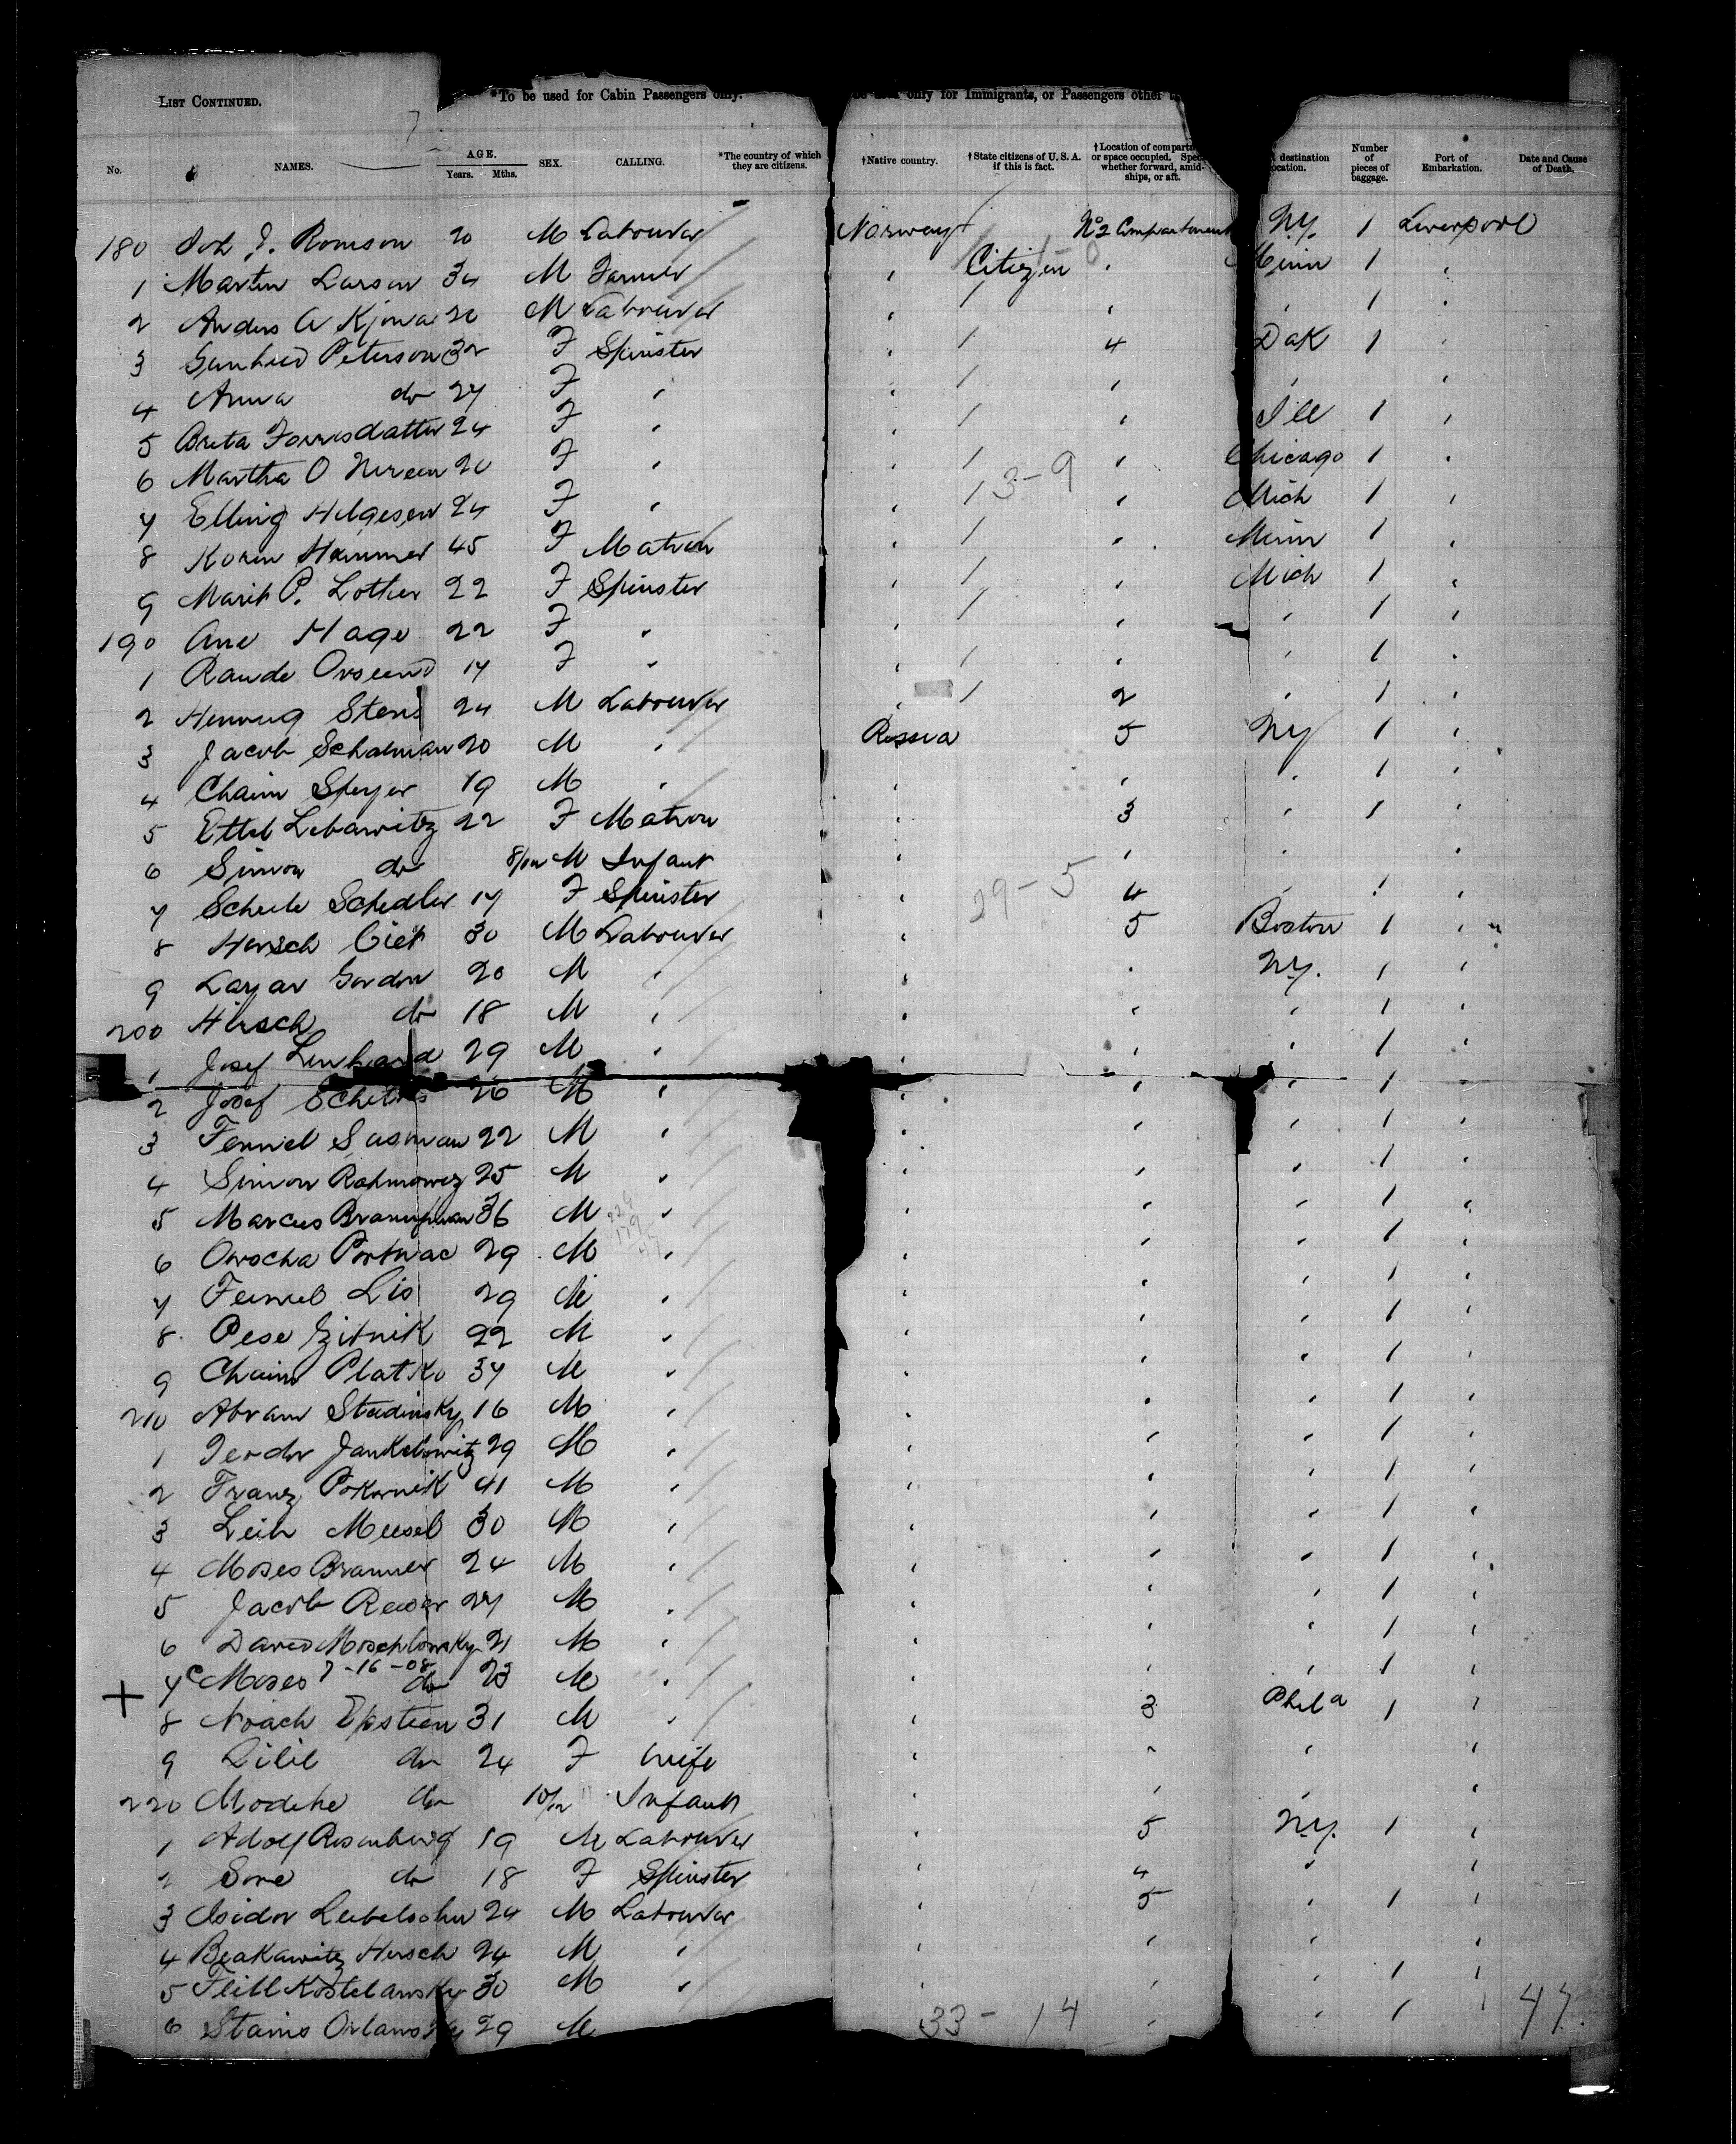 LIST CONTINUED.
*To be used for Cabin Passengers only.
only for Immigrants, or Passengers other
No. NAMES. AGE. Years. Mths. SEX. CALLING. *The country of which they are citizens. †Native country. †State citizens of U. S. A. if this is fact. †Location of compartm or space occupied. whether forward, amid- ships, or aft. destination Number of pieces of baggage. Port of Embarkation. Date and Cause of Death.
180 Joh J. Romson 20 M Labourer Norway / No 2 Compartment N.Y. 1 Liverpool
1 Martin Larson 34 M Farmer " Citizen " Minn 1 "
2 Anders A Kjowa 20 M Labourer " / " " 1 "
3 Gunhild Peterson 32 F Spinster " / 4 Dak 1 "
4 Anna do 27 F " " / " " "
5 Brita 24 F " " / " Ill 1 "
6 Martha O 20 F " " / " Chicago 1 "
3-9
7 Elling Helgesen 24 F " " / " Mich 1 "
8 Koren Hammer 45 F Matron " / " Minn 1 "
9 Marit P. Lother 22 F Spinster " / " Mich 1 "
190 Ane Hage 22 F " " / " " 1 "
1 Rande 17 F " " / " " 1 "
2 Stens 24 M Labourer " / 2 " 1 "
3 Jacob Schalman 20 M " Russia 5 N.Y 1 "
4 Chaim Speyer 19 M " " " " 1 "
5 Ettel Lebawitz 22 F Matron " 3 " 1 "
6 Simon do 8/12 M Infant " " " "
29-5
7 Scheile Schedler 17 F Spinster " 4 " 1 "
8 Hersch 30 M Labourer " 5 Boston 1 "
9 Layar Gordon 20 M " " " N.Y. 1 "
200 Hirsch do 18 M " " " " 1 "
1 Josef Lenhard 29 M " " " " 1 "
2 Josef 26 M " " " " 1 "
3 Sasman 22 M " " " " 1 "
4 Simon Rahmowiz 25 M " " " " 1 "
5 Marcus 36 M " " " " 1 "
6 Owscha Portnac 29 M " " " " 1 "
7 Lis 29 M " " " " 1 "
8 Pese Gitnik 22 M " " " " 1 "
9 Chaim Platko 37 M " " " " 1 "
210 Abram Stadinsky 16 M " " " " 1 "
1 Teodor Jankelowitz 29 M " " " " 1 "
2 Franz Pokornik 41 M " " " " 1 "
3 Leib Meesel 30 M " " " " 1 "
4 Moses Branner 24 M " " " " 1 "
5 Jacob 27 M " " " " 1 "
6 David Moschlowsky 21 M " " " " 1 "
7-16-08
+ 7 c Moses do 23 M " " " " 1 "
8 Noach Epstein 31 M " " 3 Phila 1 "
9 Lilie do 24 F Wife " " " "
220 Modche do 10/12 Infant " " " "
1 Adolf Rosenberg 19 M Labourer " 5 N.Y. 1 "
2 Sore do 18 F Spinster " 4 " "
3 Isidor Leebelsohn 24 M Labourer " 5 " 1 "
4 Beakawitz Hersch 24 M " " " " "
5 Kostelansky 30 M " " " " 1 "
6 Stanis Orlansky 29 M " " 1 "
33-14
47.